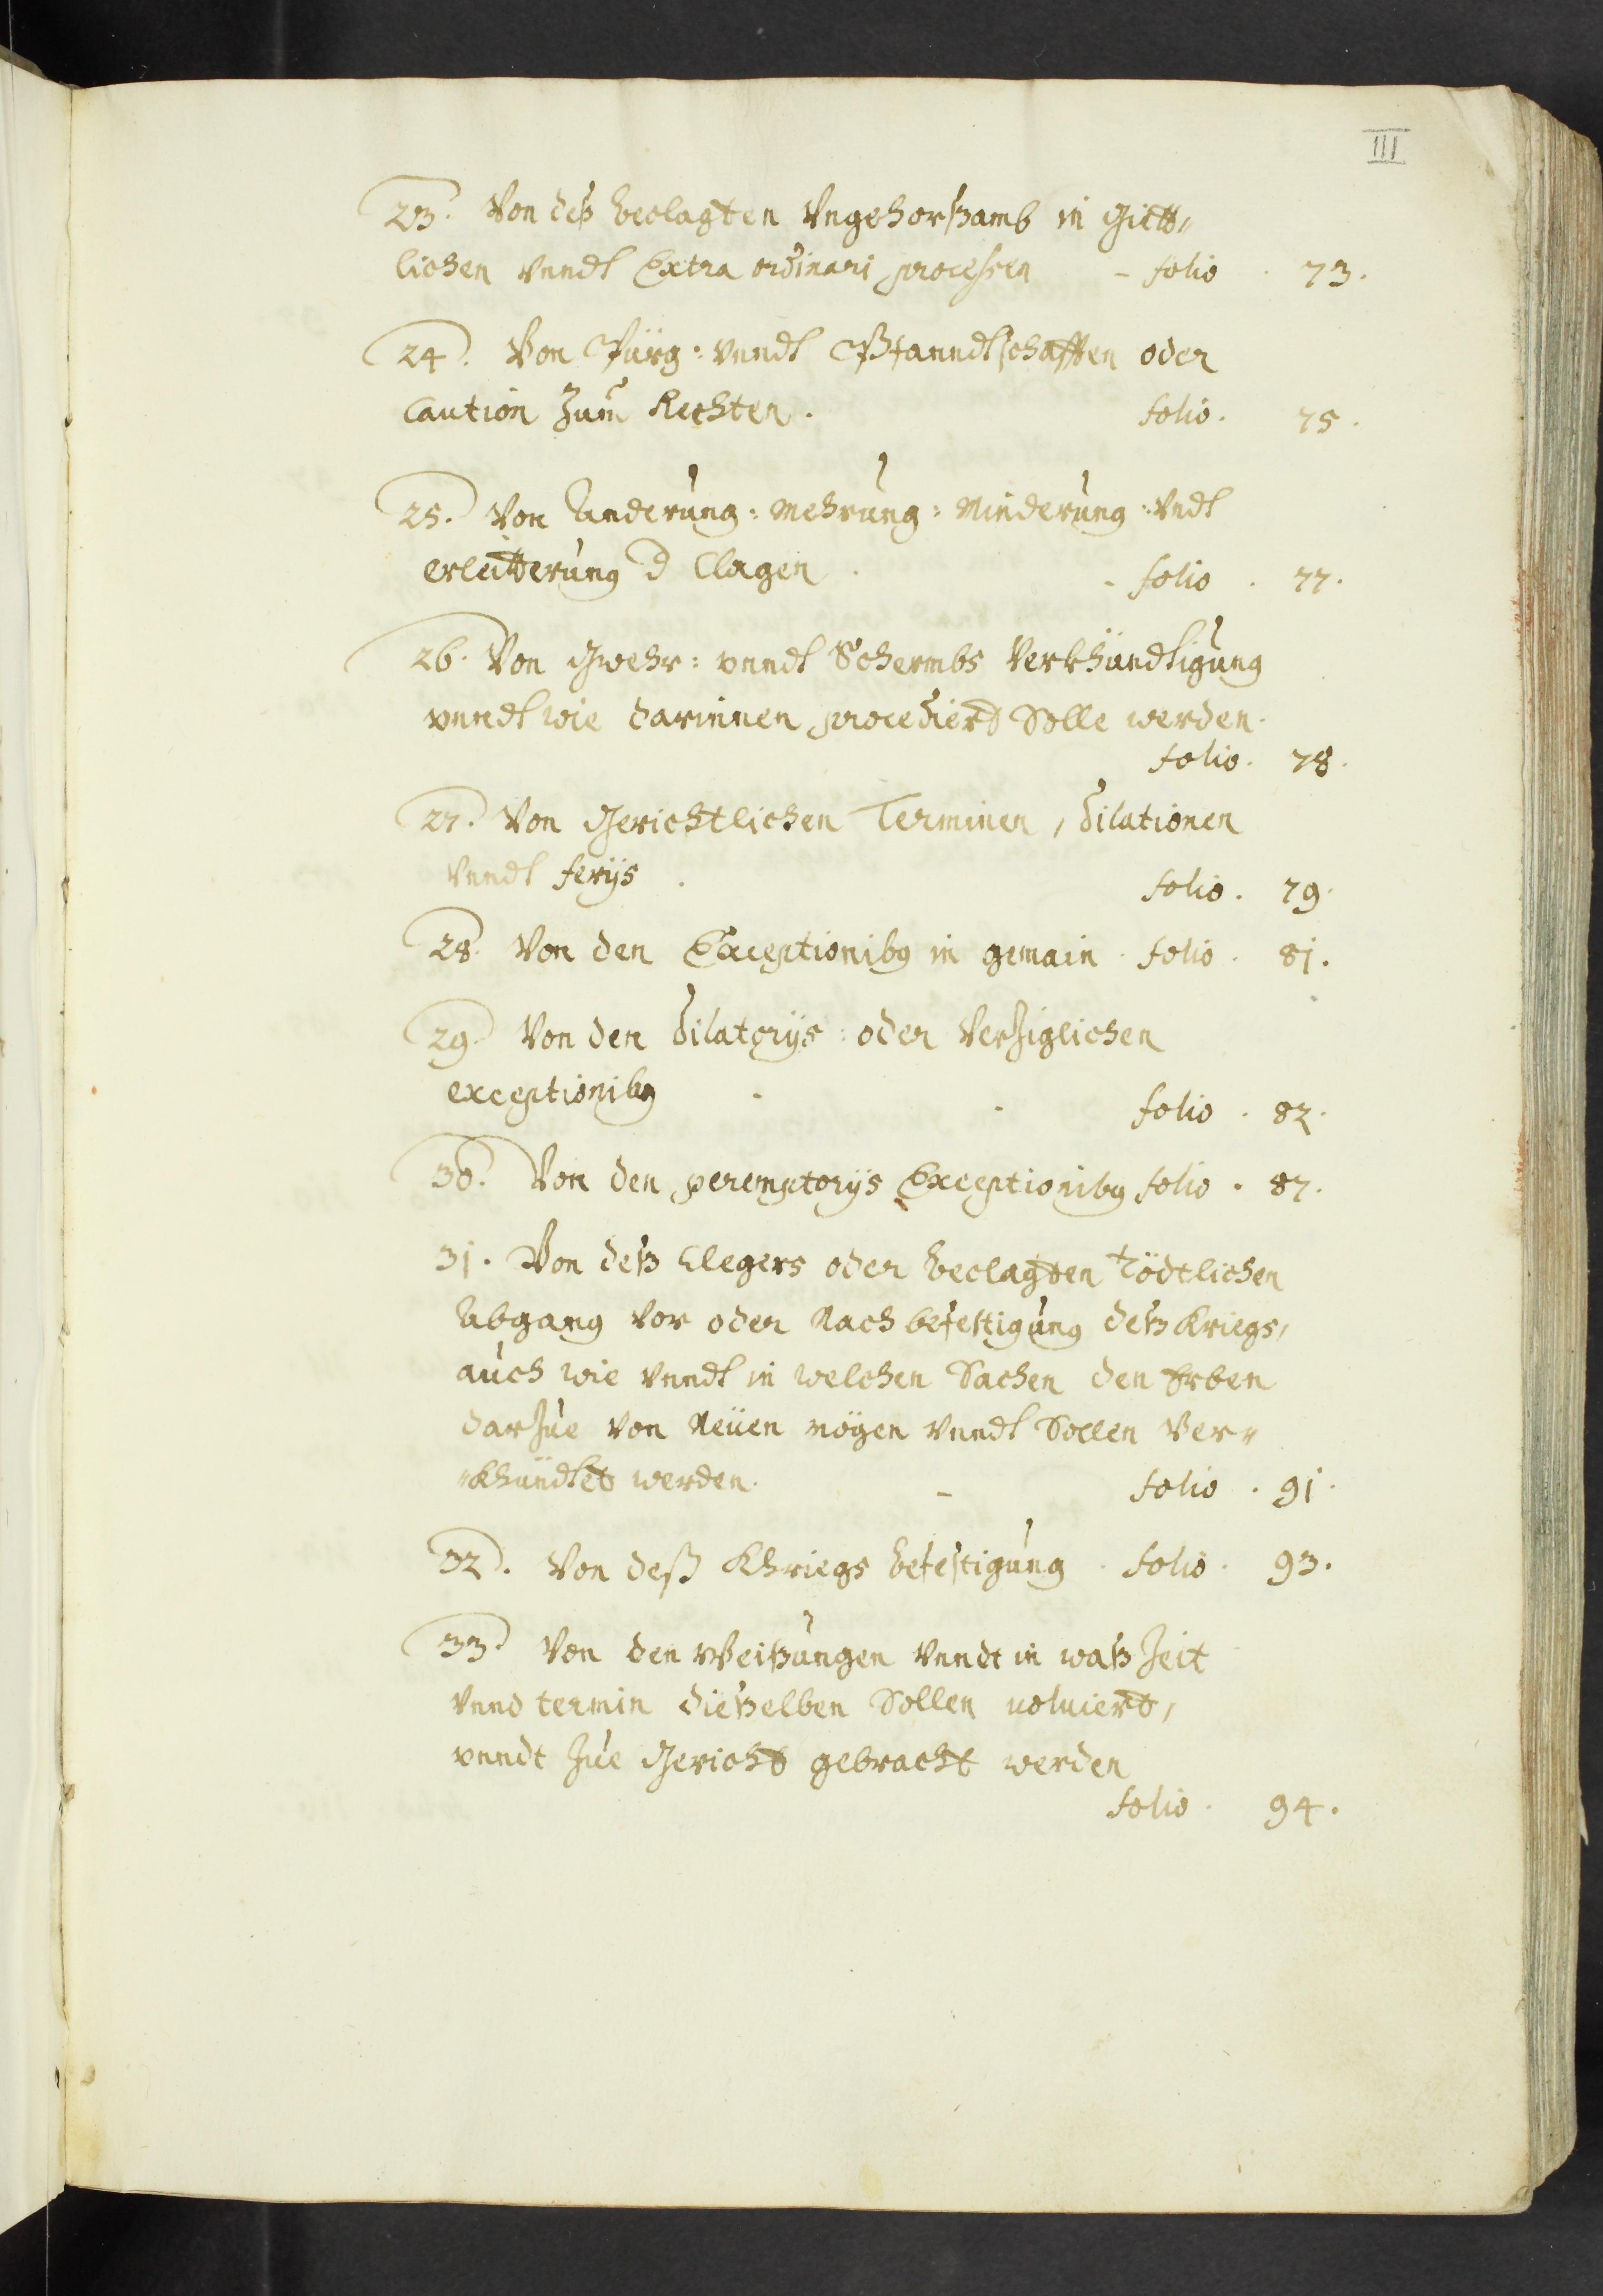 III
23. Von deß beclagten Vngehorßamb in Giett„
lichen vnndt Extra ordinari processen - folio . 73.
24. Von Pürg: vnndt Pfanndtschafften oder
Caution Zum Rechten . folio . 75.
25. Von Anderung: Mehrung: Minderung: Vndt
erleütterung d Clagen . - folio . 77.
26. Von Gwehr: vnndt Schermbs Verkhündtigung
vnndt wie darinnen procediert Solle werden.
folio . 78.
27. Von Gerichtlichen Terminen, dilationen
Vnndt ferijs . folio . 79.
28. Von den Exceptionibg in gemain . folio . 8j.
29. Von den dilatorijs: oder Verziglichen
exceptionibg . - folio . 82.
30. Von den peremptorijs Exceptionibg folio . 87.
3j. Von deß Clegers oder beclagten Tödtlichen
Abgang vor oder Nach befestigung deß Kriegs,
auch wie vnndt in welchen Sachen den Erben
darzue von Neüen mögen vnndt Sollen Ver„
„khündtet werden. - folio . 9j.
32. Von deß Khriegs befestigung . folio . 93.
33. Von den Weißungen Vnndt in waß Zeit
Vnnd termin dießelben Sollen voluiert,
vnndt Zue Gericht gebracht werden
folio . 94.